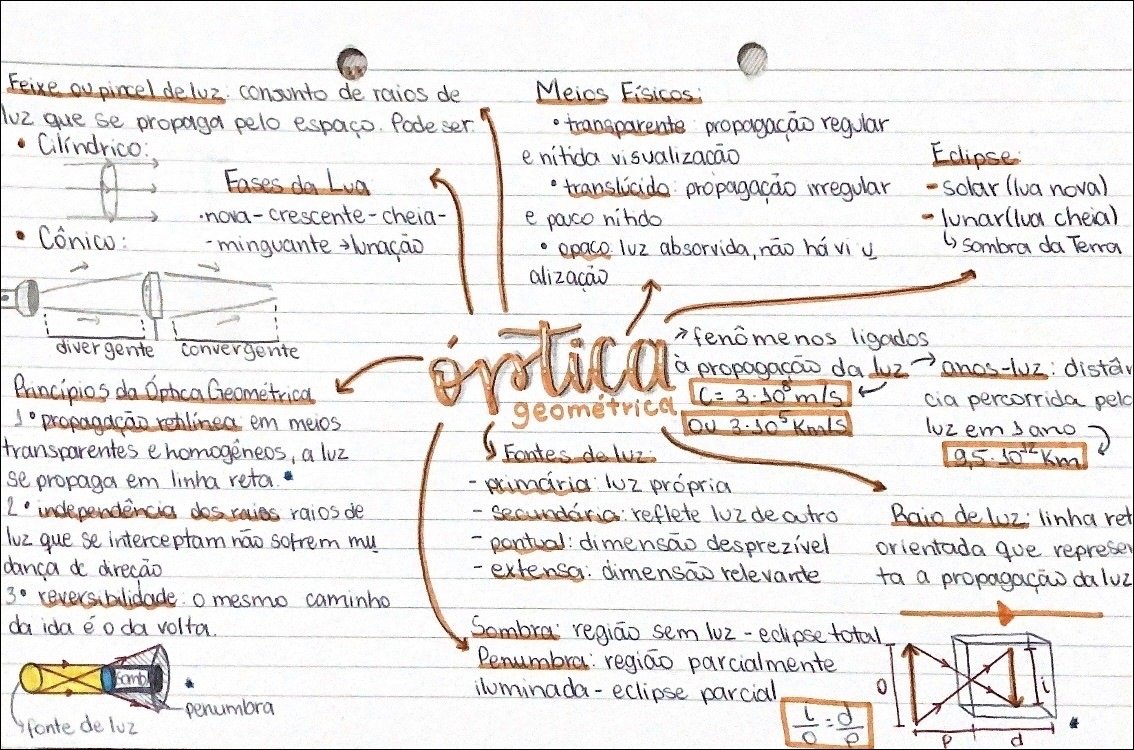 Feixe ou pincel de luz: conjunto de raios de
luz que se propaga pelo espaço. Pode ser:
• Cilíndrico:
• Cônico:
divergente
convergente
Fases da Lua
•nova-crescente-cheia-
-minguante → lunação
Meios Físicos:
• transparente: propagação regular
e nítida visualização
• translúcido: propagação irregular
e pouco nítido
• opaco: luz absorvida, não há vi
alização
Eclipse:
- solar (lua nova)
- lunar (lua cheia)
↳ sombra da Terra
óptica
geométrica
→ fenômenos ligados
à propagação da luz
C = 3·10⁸ m/s
ou 3·10⁵ Km/s
→ anos-luz: distân
cia percorrida pelo
luz em 1 ano
9,5·10¹² Km
Princípios da Óptica Geométrica
1° propagação retilínea: em meios
transparentes e homogêneos, a luz
se propaga em linha reta.
2° independência dos raios raios de
luz que se interceptam não sofrem mu
dança de direção
3° reversibilidade: o mesmo caminho
da ida é o da volta.
fonte de luz
Somb
penumbra
Fontes de luz:
- primária: luz própria
- secundária: reflete luz de outro
- pontual: dimensão desprezível
- extensa: dimensão relevante
Raio de luz: linha ret
orientada que represen
ta a propagação da luz
Sombra: região sem luz - eclipse total
Penumbra: região parcialmente
iluminada - eclipse parcial
i/o = d/p
o
i
p
d